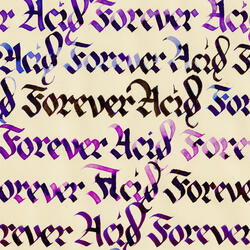 Acid Forever Aci
Acid Forever Acid
Forever Acid
Forever Acid Forever
orever Acid Forever
orever Acid Forever